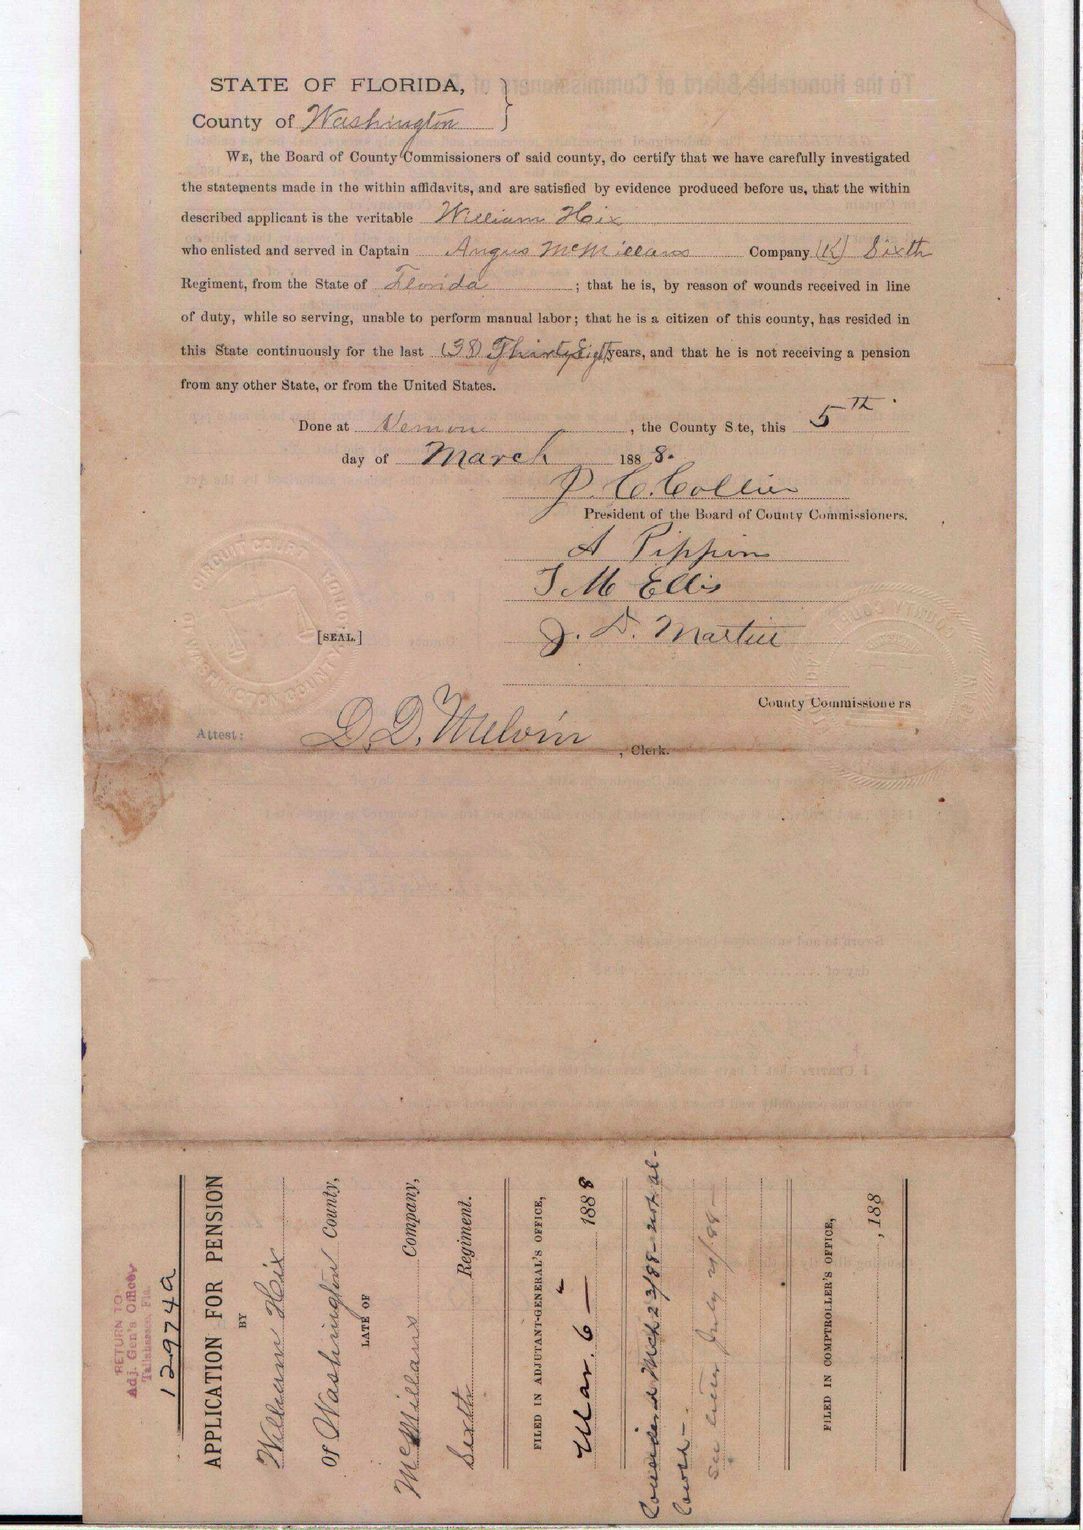 STATE OF FLORIDA,
County of Washington
WE, the Board of County Commissioners of said county, do certify that we have carefully investigated
the statements made in the within affidavits, and are satisfied by evidence produced before us, that the within
described applicant is the veritable William Hix
who enlisted and served in Captain Angus McMillans Company (K) Sixth
Regiment, from the State of Florida ; that he is, by reason of wounds received in line
of duty, while so serving, unable to perform manual labor; that he is a citizen of this county, has resided in
this State continuously for the last (38) Thirty Eight years, and that he is not receiving a pension
from any other State, or from the United States.
Done at Vernon , the County S te, this 5th
day of March 1888.
J. C. Collier
President of the Board of County Commissioners.
A Pippin
T M Ellis
J. D. Martin
[SEAL.]
CIRCUIT COURT
WASHINGTON COUNTY
County Commissioners
Attest: D. D. Melvin , Clerk.
RETURN TO
Adj. Gen's Office
Tallahassee, Fla.
12974a
APPLICATION FOR PENSION
BY
William Hix
of Washington County,
LATE OF
McMillans Company,
Sixth Regiment.
FILED IN ADJUTANT-GENERAL'S OFFICE,
Mar. 6 — 1888
Considered Mch 23/88 - not al-
lowed -
See letter July /88 -
FILED IN COMPTROLLER'S OFFICE,
, 188